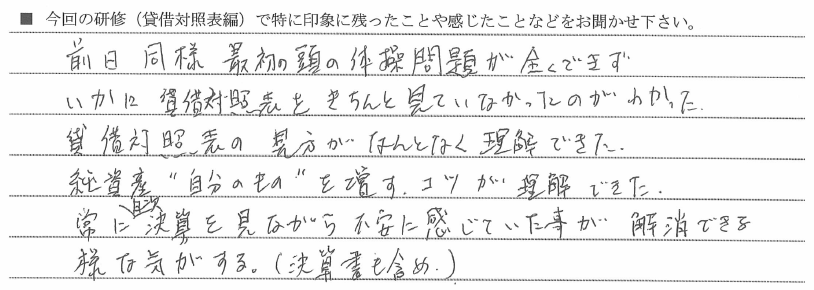 ■ 今回の研修（貸借対照表編）で特に印象に残ったことや感じたことなどをお聞かせ下さい。
前日同様 最初の頭の体操問題が全くできず
いかに貸借対照表をきちんと見ていなかったのがわかった.
貸借対照表の見方がなんとなく理解できた.
総資産 "自分のもの" を増す. コツが理解できた.
常に 決算を見ながら不安に感じていた事が 解消できる
様な気がする。(決算書も含め.)